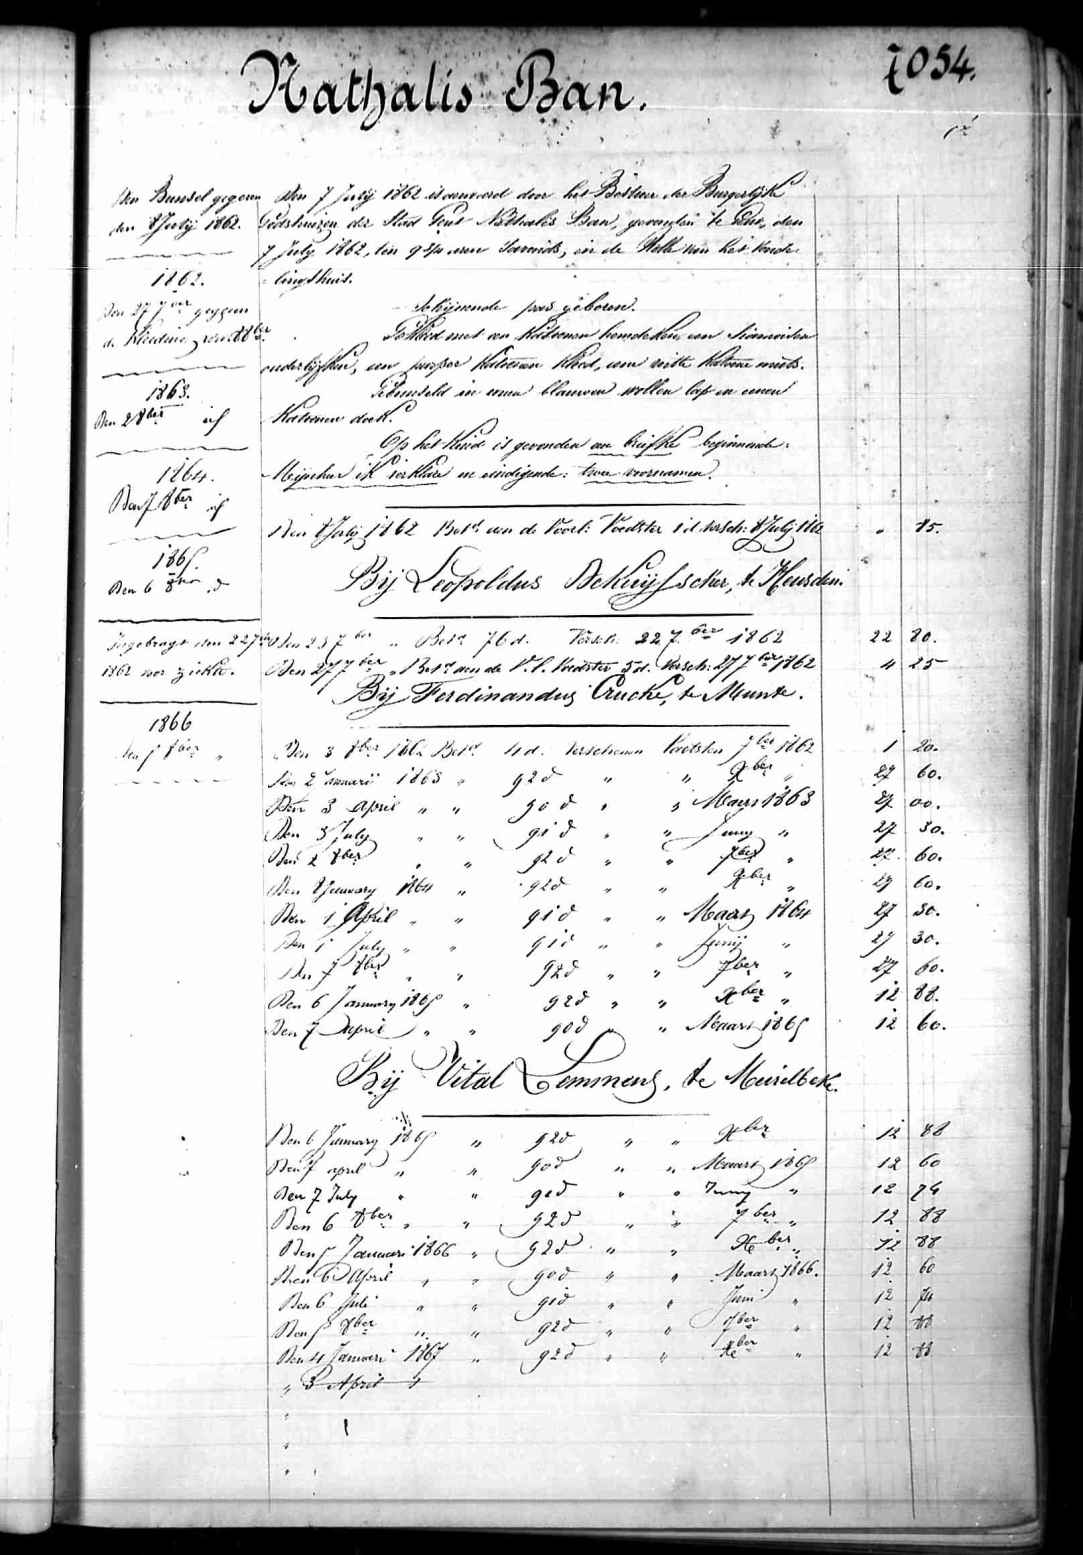 7054.
Nathalis Ban.
Den Bunsel gegeven
den 8 July 1862.
1862.
Den 27 7ber gegeven
de kleeding van 8ber
1863.
Den 2 8ber id
1864.
Den 7 8ber id
1865.
Den 6 8ber id
Ingebragt den 22 7ber
1862 voor ziekte.
1866
Den 5 8ber "
Den 7 July 1862 is aanveerd door het Bestuur der Burgerlijke
Godshuizen der Stad Gent Nathalis Ban, gevonden te Gent, den
7 July 1862, ten 9 1/2 uren 's avonds, in de Rolle van het Vonde-
lingshuis.
Schijnende pas geboren.
Gekleed met een kattoenen hemdeken, een Siamoisen
onderlijfken, een purper kattoenen kleed, eene witte katoene muts.
Gebunseld in eenen blauwen wollen lap en eenen
Katoenen doek.
Op het kind is gevonden een briefke beginnende:
Mijnheer ik verklare en eindigende: twee voornamen.
Den 8 July 1862 Betd aan de Voorl: Voedster 1 d. versch: 8 July 1862 " 85.
Bij Leopoldus DeKuysscher, te Heusden.
Den 23 7ber " Betd 76 d. Versch: 22 7ber 1862 22 80.
Den 27 7ber " Betd aan de V. l. Voedster 5 d. versch: 27 7ber 1862 4 25
Bij Ferdinandus Crucke, te Munte.
Den 3 8ber 1862 Betd 4 d. verschenen Voedster 7ber 1862 1 20.
Den 2 Januarij 1863 " 92 d " " Xber " 27 60.
Den 3 April " " 90 d " " Maert 1863 27 00.
Den 3 July " " 91 d " " Juny " 27 30.
Den 2 8ber " " 92 d " " 7ber " 27 60.
Den 8 January 1864 " 92 d " " Xber " 27 60.
Den 1 April " " 91 d " " Maert 1864 27 30.
Den 1 July " " 91 d " " Junij " 27 30.
Den 7 8ber " " 92 d " " 7ber " 27 60.
Den 6 January 1865 " 92 d " " Xber " 12 88.
Den 7 April " " 90 d " " Maart 1865 12 60.
Bij Vital Lemmens, te Meirelbeke.
Den 6 January 1865 " 92 d " " Xber 12 88
Den 7 april " " 90 d " " Maart 1865 12 60
Den 7 July " " 91 d " " Juny " 12 74
Den 6 8ber " " 92 d " " 7ber " 12 88
Den 5 Januari 1866 " 92 d " " Xber " 12 88
Den 6 April " " 90 d " " Maart 1866. 12 60
Den 6 Juli " " 91 d " " Juni " 12 74
Den 5 8ber " " 92 d " " 7ber " 12 88
Den 4 Januari 1867 " 92 d " " Xber " 12 88
" 3 April "
"
"
"